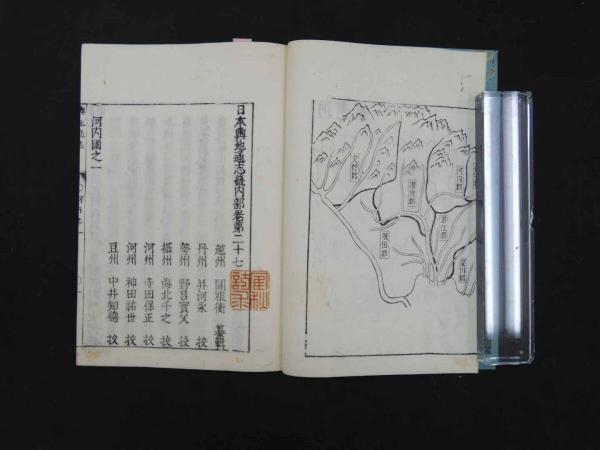 日本輿地通志畿内部巻第二十七
越州 關祖衡 纂輯
丹州 并河永 挍
勢州 野呂實父 挍
攝州 海北千之 挍
河州 寺田保正 挍
河州 神田祐世 挍
豆州 中井知德 挍
河内國之一
交野郡
讃良郡
茨田郡
河内郡
若江郡